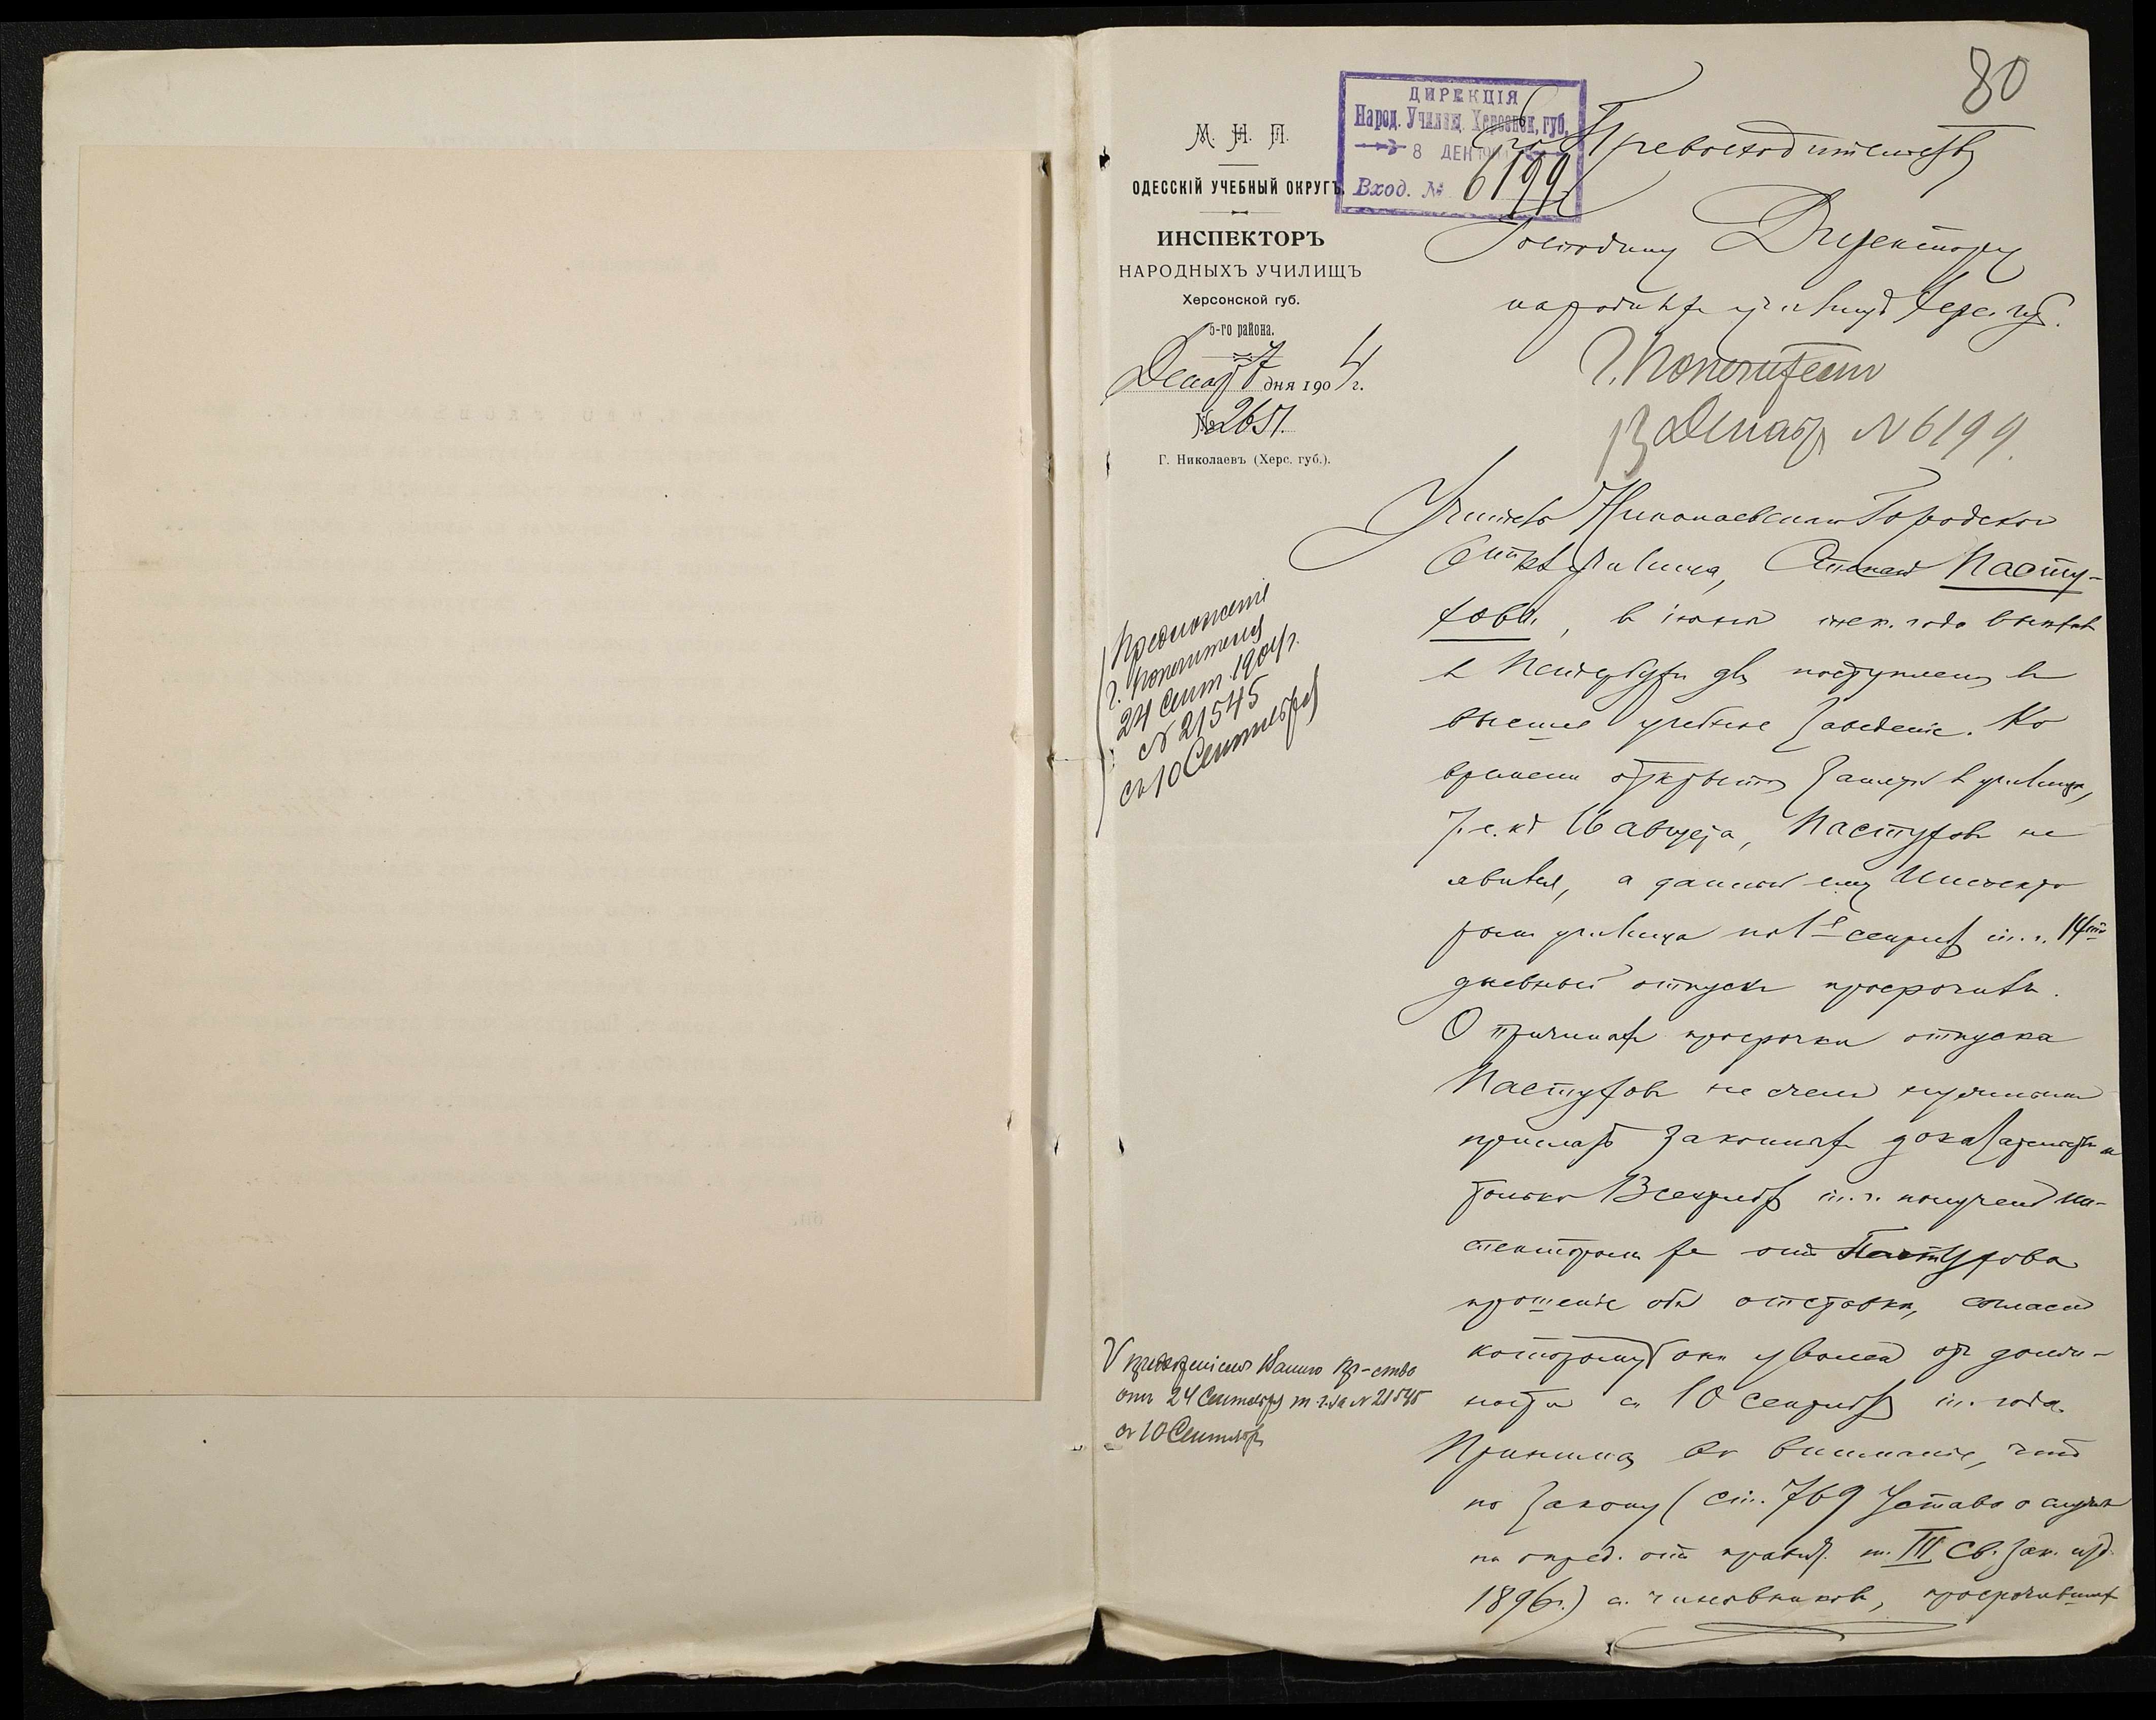 80
М. Н. П.
ОДЕССКІЙ УЧЕБНЫЙ ОКРУГЪ.
ИНСПЕКТОРЪ
НАРОДНЫХЪ УЧИЛИЩЪ
Херсонской губ.
5-го района.
Декабр 7 дня 1904 г.
№ 2651.
Г. Николаевъ (Херс. губ.).
ДИРЕКЦІЯ
Народ. Училищ. Херсонск. губ.
8 ДЕК 1904
Вход. № 6199
Его Превосходительству
Господину Директору
народныхъ училищъ Херс. губ.
Г. Попечителю
13 Декабр № 6199.
Учитель Николаевскаго Городского
6ти кл училища, Пасту-
ховъ, в іюнѣ тек. года выѣхав
в Петербургъ для поступленія в
высшее учебное заведеніе. Ко
времени открытія занятій в училищѣ,
т.е. къ 16 августа, Пастуховъ не
явился, а данный ему Инспекто
ромъ училища по 1е сентября т. г. 14ти
дневный отпускъ просрочилъ.
О причинахъ просрочки отпуска
Пастуховъ не счелъ нужнымъ
прислать законныхъ доказательствъ и
только 13 сентября т. г. полученъ Ин-
спекторомъ от Пастухова
прошеніе объ отставкѣ, согласно
которому онъ уволенъ отъ долж-
ности с 10 сентября т. года.
Принимая во вниманіе, что
по закону (ст. 769 Устава о службѣ
по опред. отъ правит. т. III Св. Зак. изд.
1896 г.) чиновниковъ, просрочившихъ
Предложеніе
г. Попечителя
24 Сент. 1904 г.
№ 21545
съ 10 Сентября
V предложеніемъ Вашего Пр-ства
отъ 24 Сентября т. г. за № 21545
съ 10 Сентября